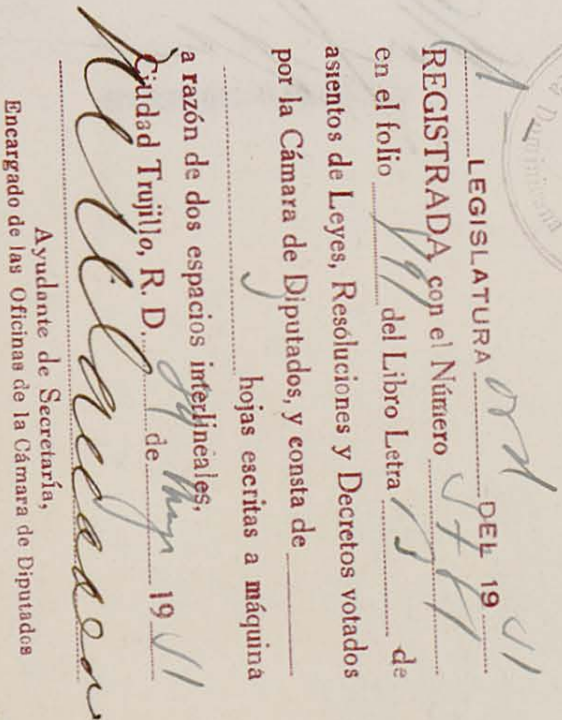 LEGISLATURA ord DEL 19
REGISTRADA con el Número
en el folio del Libro Letra de
asientos de Leyes, Resoluciones y Decretos votados
por la Cámara de Diputados, y consta de
hojas escritas a máquina
a razón de dos espacios interlineales.
Ciudad Trujillo, R. D. de 19
Ayudante de Secretaría,
Encargado de las Oficinas de la Cámara de Diputados